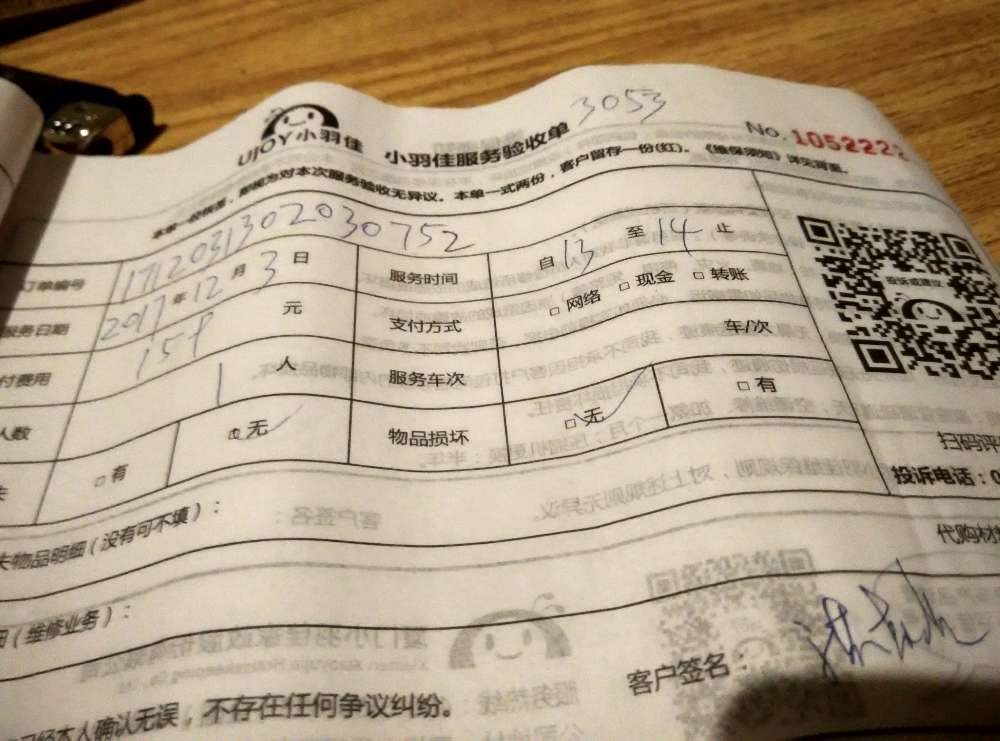 3053
UJOY小羽佳 小羽佳服务验收单 No.1052222
对本次服务验收无异议。本单一式两份，客户留存一份(红)。《维保须知》详见背面。
订单编号 171203130203075​2 服务时间 自13至14止
服务日期 2017年12月3日 支付方式 □网络 □现金 □转账
付费用 元 服务车次 车/次
人数 1人 物品损坏 □无 □有
失 □有 □无
失物品明细（没有可不填）：
细（维修业务）：
扫码评
投诉电话：0
投诉或建议
代购材
客户签名：
已经本人确认无误，不存在任何争议纠纷。